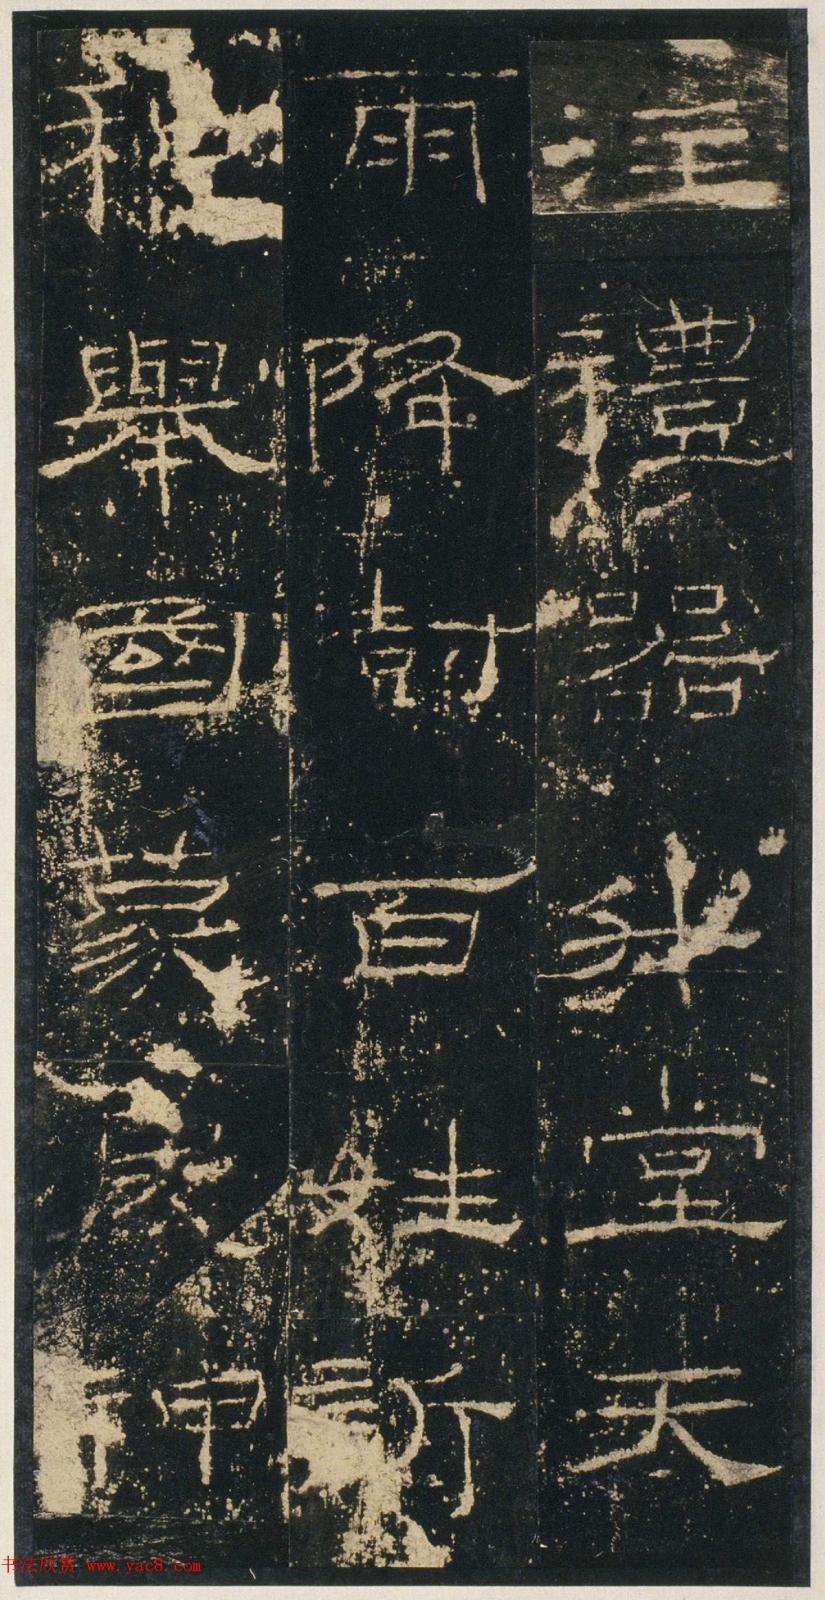 注禮器升堂天
雨降澍百姓訢
和舉國蒙慶神
书法欣赏 www.yac8.com